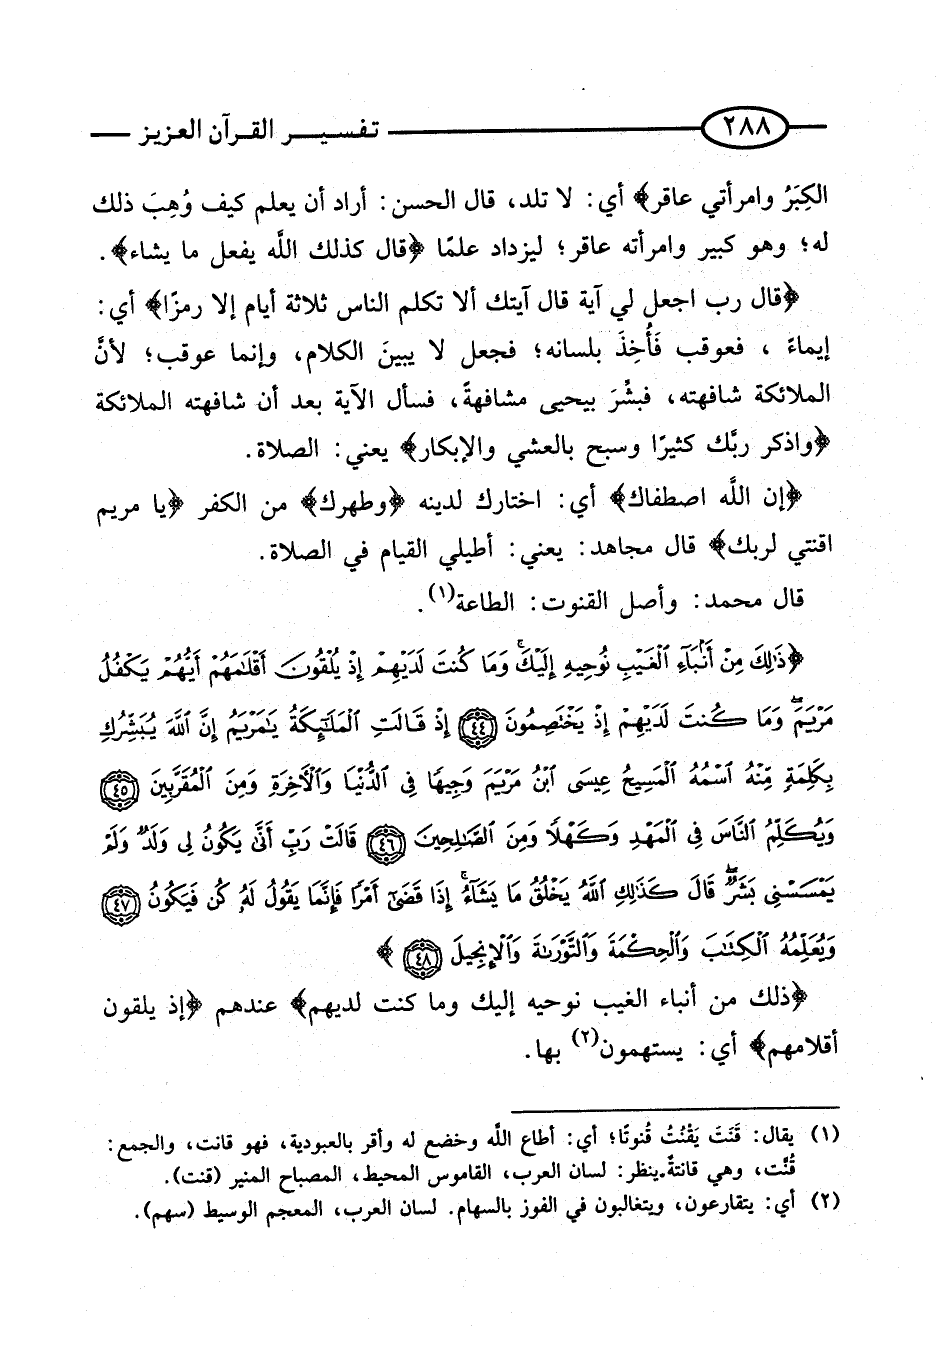 ٢٨٨ تفسير القرآن العزيز
الكِبَرُ وامرأتي عاقر﴾ أي: لا تلد، قال الحسن: أراد أن يعلم كيف وُهِبَ ذلك
له؛ وهو كبير وامرأته عاقر؛ ليزداد علمًا ﴿قال كذلك اللَّه يفعل ما يشاء﴾.
﴿قال رب اجعل لي آية قال آيتك ألا تكلم الناس ثلاثة أيام إلا رمزًا﴾ أي:
إيماءً ، فعوقب فَأُخِذَ بلسانه؛ فجعل لا يبينَ الكلام، وإنما عوقب؛ لأنَّ
الملائكة شافهته، فبشِّرَ بيحيى مشافهةً، فسأل الآية بعد أن شافهته الملائكة
﴿واذكر ربَّك كثيرًا وسبح بالعشي والإبكار﴾ يعني: الصلاة.
﴿إن اللَّه اصطفاك﴾ أي: اختارك لدينه ﴿وطهرك﴾ من الكفر ﴿يا مريم
اقنتي لربك﴾ قال مجاهد: يعني: أطيلي القيام في الصلاة.
قال محمد: وأصل القنوت: الطاعة(١).
﴿ذَٰلِكَ مِنْ أَنۢبَآءِ ٱلْغَيْبِ نُوحِيهِ إِلَيْكَ ۚ وَمَا كُنتَ لَدَيْهِمْ إِذْ يُلْقُونَ أَقْلَٰمَهُمْ أَيُّهُمْ يَكْفُلُ
مَرْيَمَ ۖ وَمَا كُنتَ لَدَيْهِمْ إِذْ يَخْتَصِمُونَ ٤٤ إِذْ قَالَتِ ٱلْمَلَٰٓئِكَةُ يَٰمَرْيَمُ إِنَّ ٱللَّهَ يُبَشِّرُكِ
بِكَلِمَةٍ مِّنْهُ ٱسْمُهُ ٱلْمَسِيحُ عِيسَى ٱبْنُ مَرْيَمَ وَجِيهًا فِى ٱلدُّنْيَا وَٱلْءَاخِرَةِ وَمِنَ ٱلْمُقَرَّبِينَ ٤٥
وَيُكَلِّمُ ٱلنَّاسَ فِى ٱلْمَهْدِ وَكَهْلًا وَمِنَ ٱلصَّٰلِحِينَ ٤٦ قَالَتْ رَبِّ أَنَّىٰ يَكُونُ لِى وَلَدٌ وَلَمْ
يَمْسَسْنِى بَشَرٌ ۖ قَالَ كَذَٰلِكِ ٱللَّهُ يَخْلُقُ مَا يَشَآءُ ۚ إِذَا قَضَىٰٓ أَمْرًا فَإِنَّمَا يَقُولُ لَهُۥ كُن فَيَكُونُ ٤٧
وَيُعَلِّمُهُ ٱلْكِتَٰبَ وَٱلْحِكْمَةَ وَٱلتَّوْرَىٰةَ وَٱلْإِنجِيلَ ٤٨ ﴾
﴿ذلك من أنباء الغيب نوحيه إليك وما كنت لديهم﴾ عندهم ﴿إذ يلقون
أقلامهم﴾ أي: يستهمون(٢) بها.
(١) يقال: قَنَتَ يَقْنُتُ قُنوتًا؛ أي: أطاع اللَّه وخضع له وأقر بالعبودية، فهو قانت، والجمع:
قُنَّت، وهي قانتةٌ.ينظر: لسان العرب، القاموس المحيط، المصباح المنير (قنت).
(٢) أي: يتقارعون، ويتغالبون في الفوز بالسهام. لسان العرب، المعجم الوسيط (سهم).